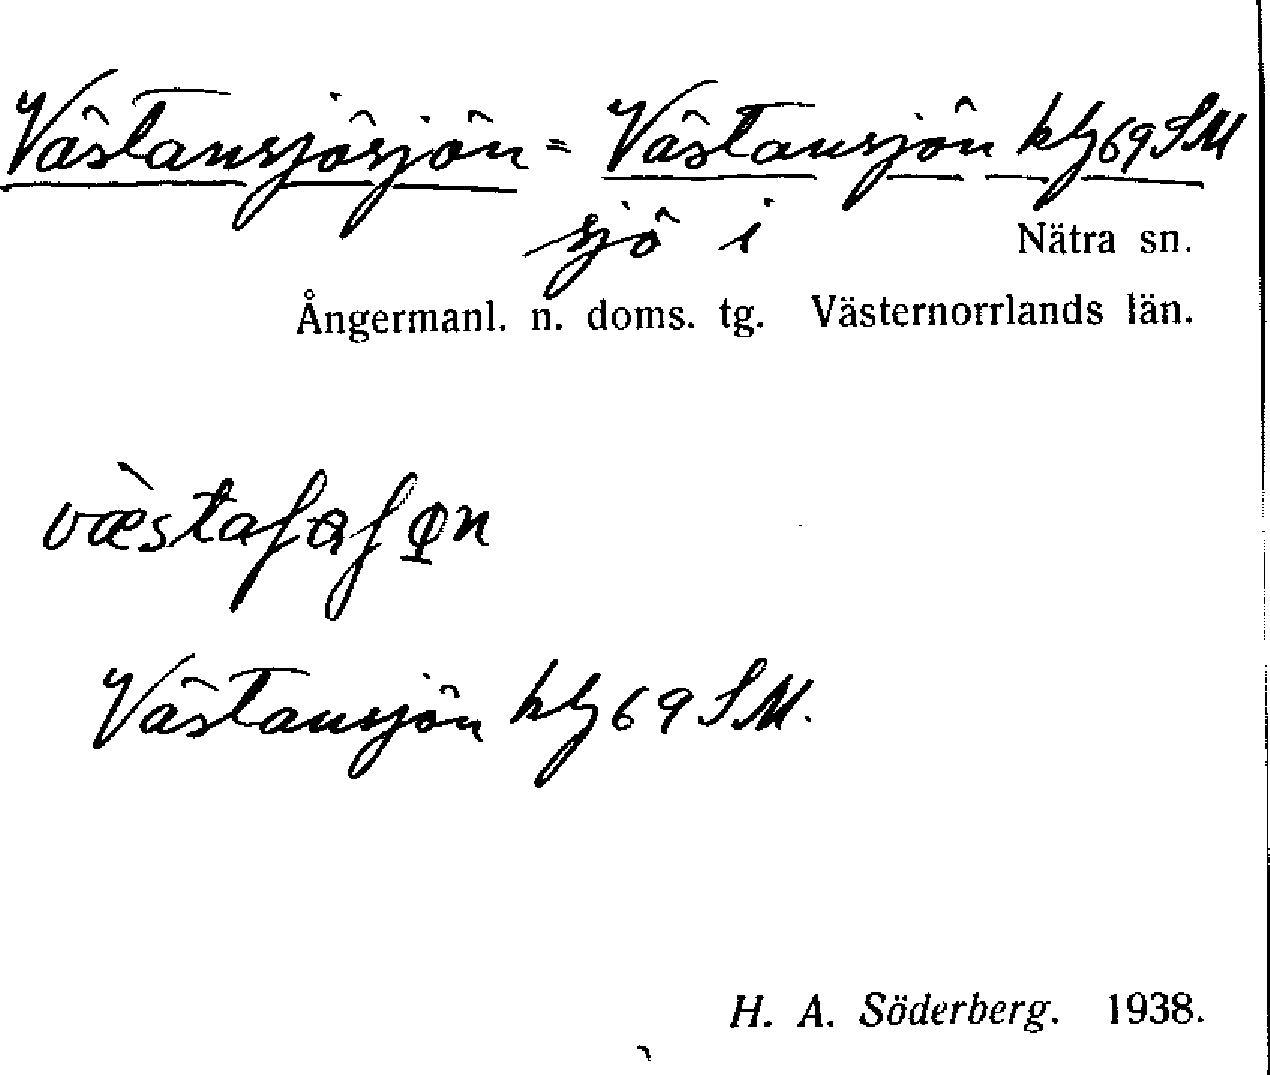 Västansjösjön = Västansjön kbl 69 SM
sjö i Nätra sn.
Ångermanl. n. doms. tg. Västernorrlands län.
Västansjön kbl 69 SM.
H. A. Söderberg. 1938.